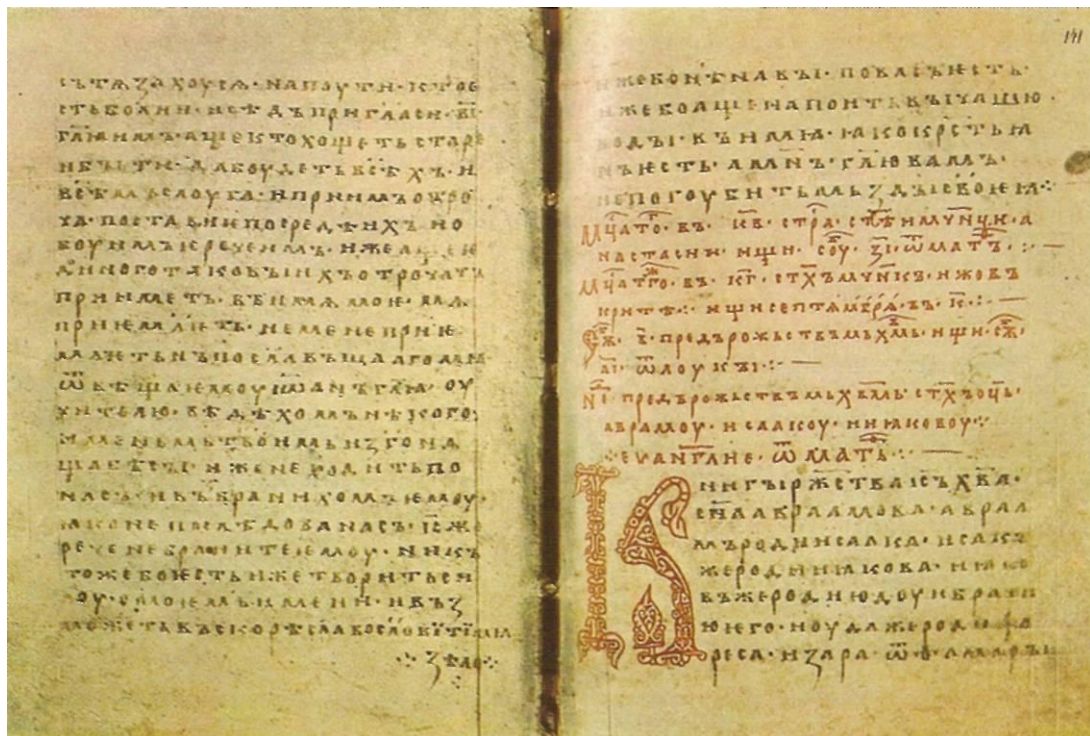 сътѧзахоусѧ · напоути · кто ѥ
сть болии · и сѣдъ пригласи · в҃і ·
гл҃а имъ · аще кто хощеть старе
и бꙑти · да боудеть вьсѣхъ · и
вьсѣмъ слоуга · и приимъ отро
чѧ · постави ѥ посредѣ ихъ · но
ѥдиного таковꙑихъ отрочатъ
прииметь · въ имѧ моѥ · мѧ
приѥмлѥть · не мене приѥ
млѥть нъ посълавъшааго мѧ ·
ѿвѣща ѥмоу иѡанъ гл҃ѧ · оу
чителю · видѣхомъ нѣкого
именьмь твоимь изгонѧ
ща бѣсꙑ · иже не ходить по
насъ · и възбранихомъ ѥмоу
ꙗко не послѣдова насъ · іс҃ же
рече не браните ѥмоу · никъ
тоже бо ѥсть иже творить си
лоу о моѥмь имени · и въз
можеть въскорѣ зълословити мѧ
зѣло
иже бо нѣ на вꙑ · по васъ ѥсть ·
иже бо аще напоить вꙑ чашю
водꙑ · въ имѧ · ꙗко крс҃тьꙗ
нѣ ѥсте · аминъ · гл҃ю вамъ ·
не погоубить мьздꙑ своѥꙗ ·:·
мц҃ѧ того · въ · к҃в · стр҃а · ст҃ꙑѧ мч҃ници · а
настасии · ищи · соу · з҃і · ѿ мат ·:· —
мц҃ѧ того · въ · к҃г · ст҃хъ мч҃нкъ · иже въ
критѣ ·:· ищи септѧмбрѧ · въ · к҃ ·:· —
в҃ · предъ рожьствъмь хв҃мь · ищи · сж҃
а҃і · ѿ лоукꙑ ·:· —
н҃ · предъ рожьствъмь хв҃мь · ст҃хъ оц҃ь ·
аврамоу · исаакоу · и иꙗковоу ·:·
·:· еѵанг҃лиѥ · ѿ мат ·:· —
книгꙑ рж҃ства іс҃ъ хв҃а ·
сн҃а авраамова · авраа
мъ роди исаака · исакъ
же роди иꙗкова · иꙗко
въ же роди июдоу и брати
ю ѥго · июда же роди фа
реса · и зара · ѿ ѳамарꙑ